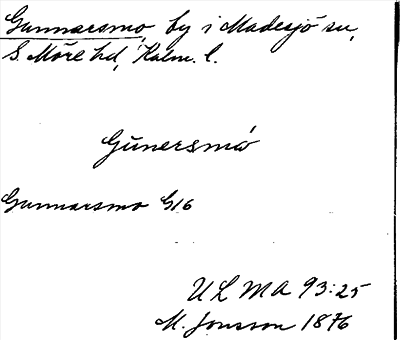 Gunnarsmo, by i Madesjö sn,
S. Möre hd, Kalm. l.
Gūnersmó
Gunnarsmo G16
ULMA 93:25
M. Jonsson 1876